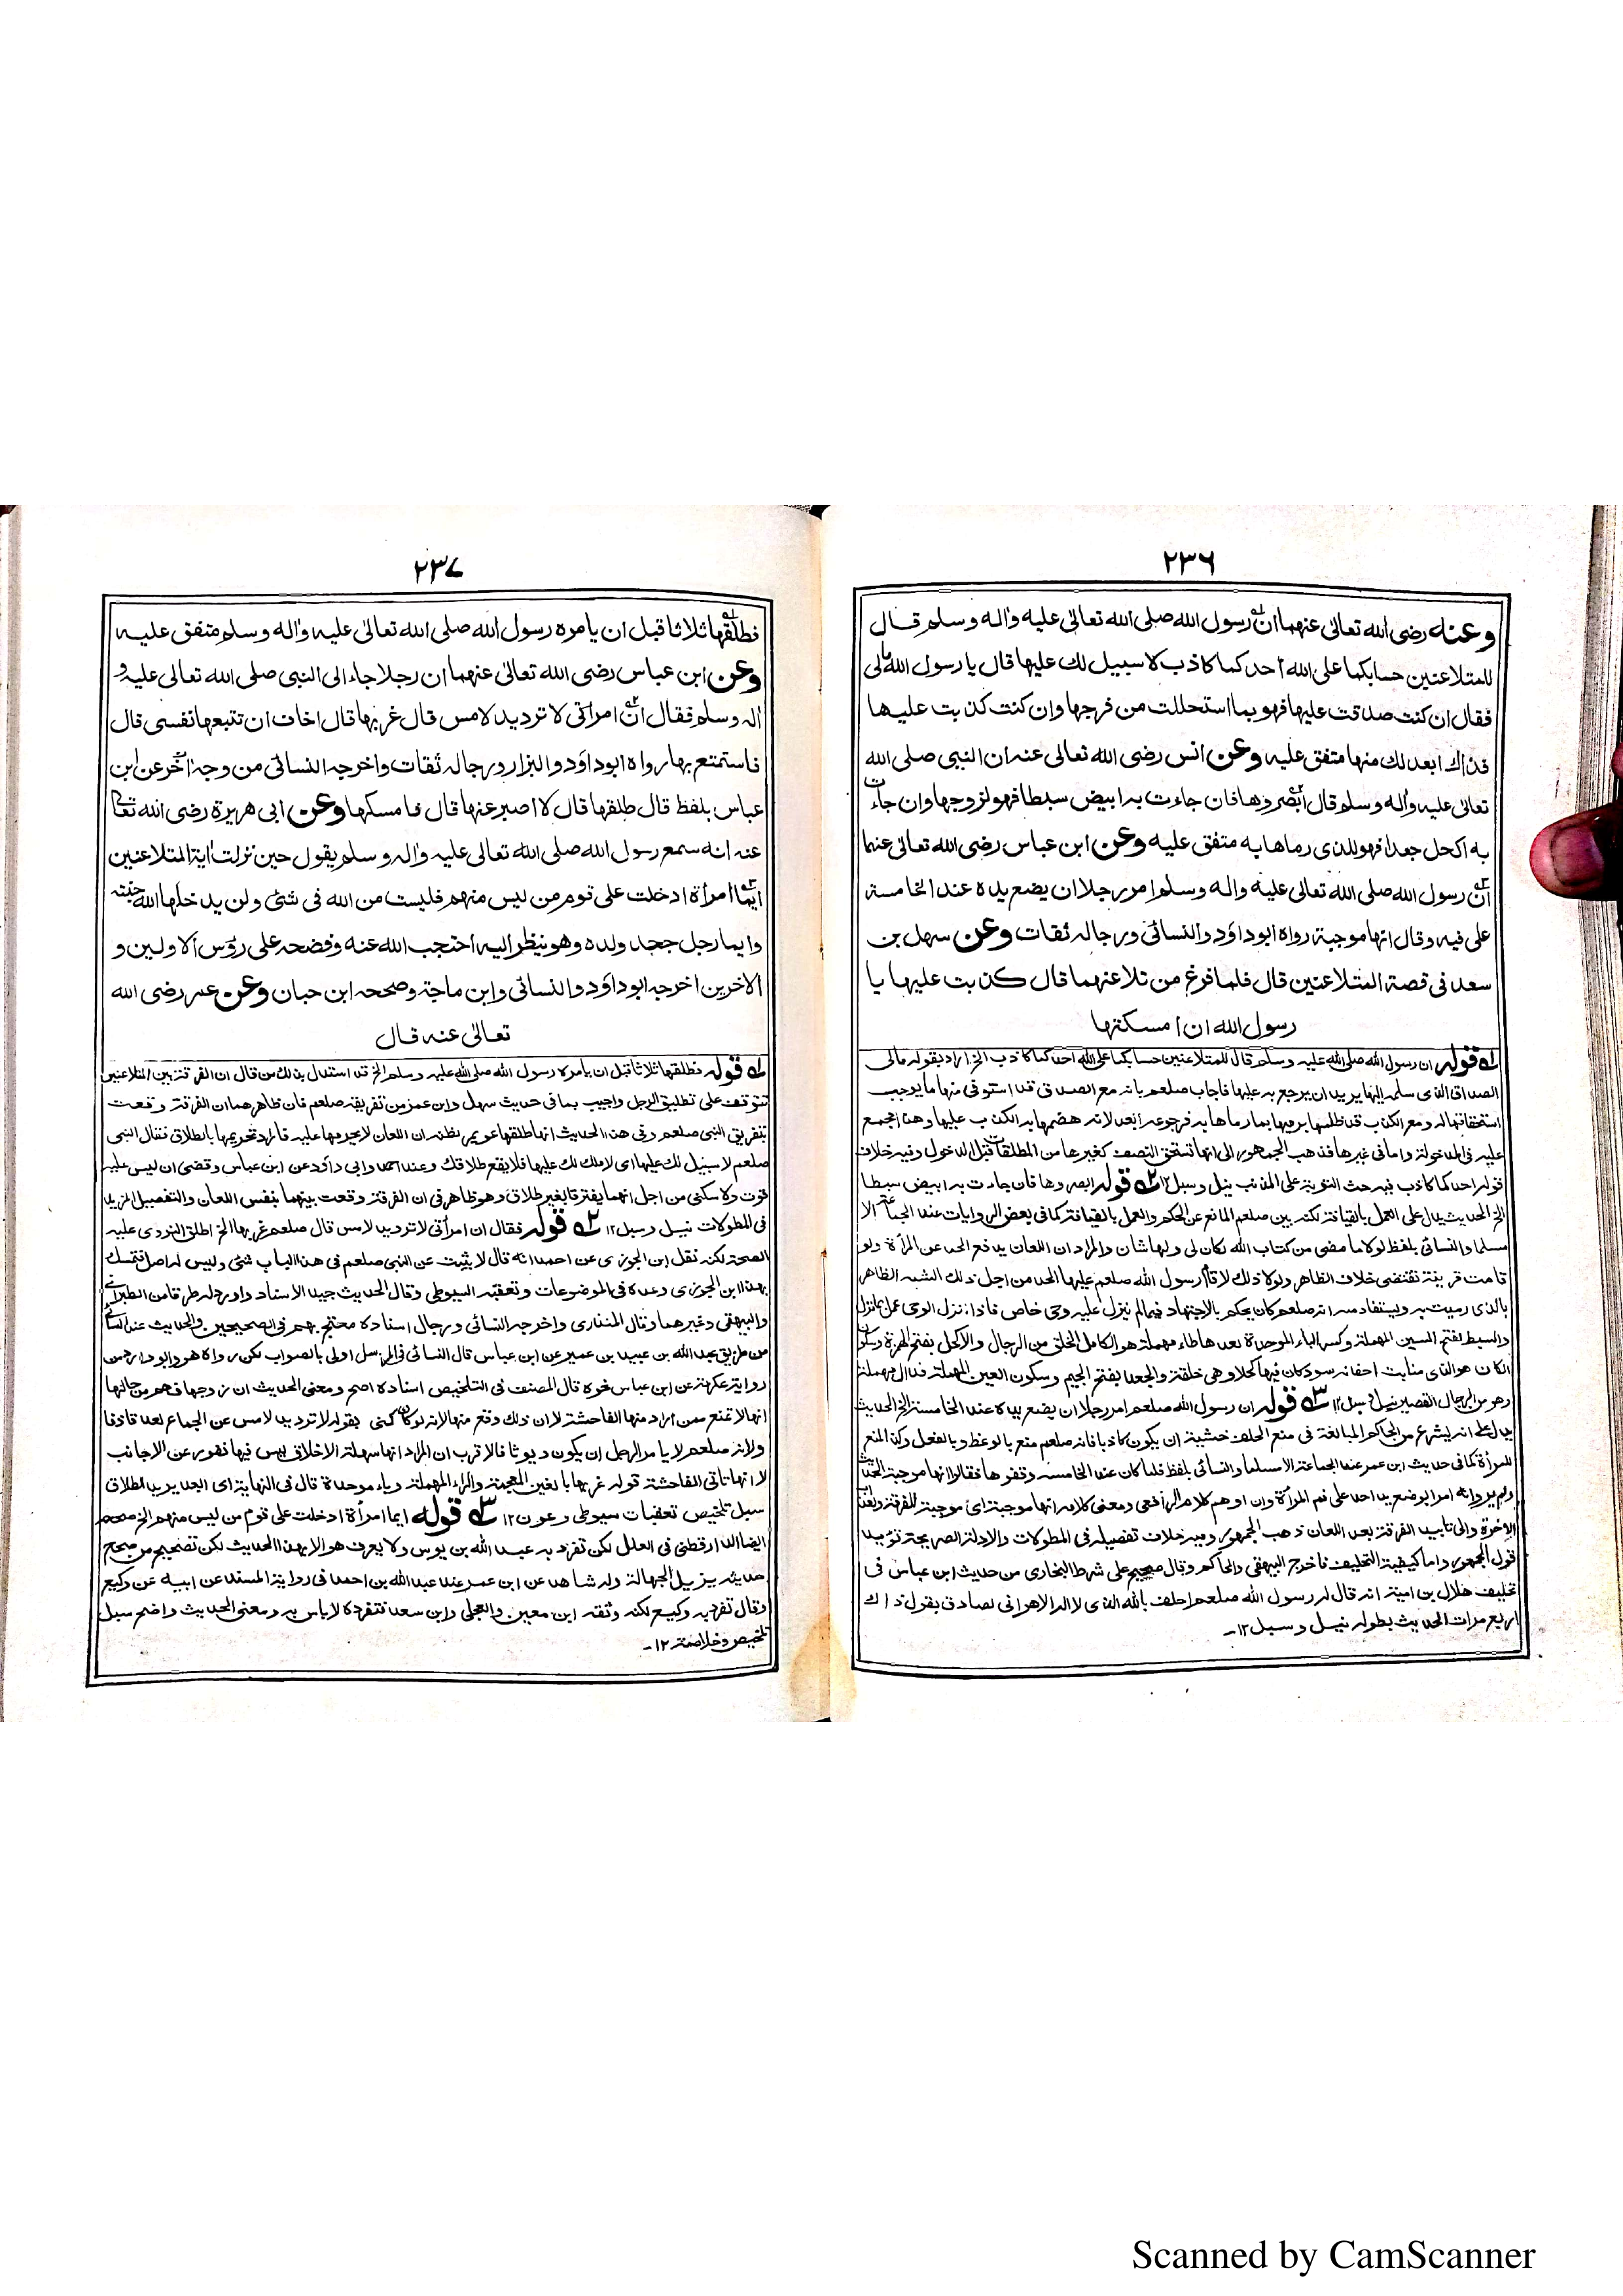 ٢٣٦
وعنه رضى الله تعالىٰ عنهما ان رسول الله صلى الله تعالىٰ عليه واٰله وسلم قال
للمتلاعنين حسابكما على الله احدكما كاذب لا سبيل لك عليها قال يا رسول الله مالى
فقال ان كنت صدقت عليها فهو بما استحللت من فرجها وان كنت كذبت عليها
فذاك ابعد لك منها متفق عليه وعن انس رضى الله تعالى عنه ان النبى صلى الله
تعالىٰ عليه واٰله وسلم قال ابصروها فان جاءت به ابيض سبطا فهو لزوجها وان جاءت
به اكحل جعدا فهو للذى رماها به متفق عليه وعن ابن عباس رضى الله تعالىٰ عنهما
ان رسول الله صلى الله تعالىٰ عليه واٰله وسلم امر رجلا ان يضع يده عند الخامسة
على فيه وقال انها موجبة رواه ابوداؤد والنسائى ورجاله ثقات وعن سهل بن
سعد فى قصة المتلاعنين قال فلما فرغ من تلاعنهما قال كذبت عليها يا
رسول الله ان امسكتها
١ قوله ان رسول الله صلى الله عليه وسلم قال للمتلاعنين حسابكما على الله احدكما كاذب الخ اراد بقوله مالى
الصداق الذى سلمه اليها يريد ان يرجع به عليها فاجاب صلعم بانه مع الصدق قد استوفى منها ما يوجب
استحقاقها له ومع الكذب قد ظلمها برميها بما رماها به فرجوعه ابعد لانه هضمها به الكذب عليها وهذا مجمع
عليه فى المدخولة واما فى غيرها فذهب الجمهور الى انها تستحق النصف كغيرها من المطلقات قبل الدخول وفيه خلاف
قوله احدكما كاذب فيه حث التوبة على المذنب نيل وسبل ١٢ ٢ قوله ابصروها فان جاءت به ابيض سبطا
الخ الحديث يدل على العمل بالقيافة لكنه بين صلعم المانع عن الحكم والعمل بالقيافة كما فى بعض الروايات عند الجماعة الا
مسلما والنسائى بلفظ لولا ما مضى من كتاب الله لكان لى ولها شان والمراد ان اللعان يدفع الحد عن المرأة ولو
قامت قرينة تقتضى خلاف الظاهر ولولا ذلك لاقام رسول الله صلعم عليها الحد من اجل ذلك الشبه الظاهر
بالذى رميت به ويستفاد منه انه صلعم كان يحكم بالاجتهاد فيما لم ينزل عليه وحى خاص فاذا نزل الوحى عمل بما نزل
والسبط بفتح السين المهملة وكسر الباء الموحدة بعدها طاء مهملة هو الكامل الخلق من الرجال والاكحل بفتح الهمزة وسكون
الكاف هو الذى منابت اجفانه سود كان فيها كحلا وهى خلقة والجعد بفتح الجيم وسكون العين المهملة فدال مهملة
وهو من الرجال القصير نيل وسبل ١٢ ٣ قوله ان رسول الله صلعم امر رجلا ان يضع يده عند الخامسة الخ الحديث
يدل على انه يشرع من الحاكم المبالغة فى منع الحلف خشية ان يكون كاذبا فانه صلعم منع بالوعظ وبالفعل وكذا المنع
للمرأة كما فى حديث ابن عمر عند الجماعة الا مسلما والنسائى بلفظ فلما كان عند الخامسة وقفوها فقالوا انها موجبة الحديث
ولم يرو انه امر بوضع يد احد على فم المرأة وان اوهم كلام الرافعى ومعنى كلامه انها موجبة اى موجبة للفرقة ولعذاب
الاخرة والى تابيد الفرقة بعد اللعان ذهب الجمهور وفيه خلاف تفصيله فى المطولات والادلة الصريحة تؤيد
قول الجمهور واما كيفية التحليف فاخرج البيهقى والحاكم وقال صحيح على شرط البخارى من حديث ابن عباس فى
تحليف هلال بن امية انه قال له رسول الله صلعم احلف بالله الذى لا اله الا هو انى لصادق يقول ذلك
اربع مرات الحديث بطوله نيل وسبل ١٢-
٢٣٧
فطلقها ثلاثا قبل ان يامره رسول الله صلى الله تعالىٰ عليه واٰله وسلم متفق عليه
وعن ابن عباس رضى الله تعالىٰ عنهما ان رجلا جاء الى النبى صلى الله تعالى عليه و
اٰله وسلم فقال ان امراتى لا ترد يد لامس قال غربها قال اخاف ان تتبعها نفسى قال
فاستمتع بها رواه ابوداؤد والبزار ورجاله ثقات واخرجه النسائى من وجه اٰخر عن ابن
عباس بلفظ قال طلقها قال لا اصبر عنها قال فامسكها وعن ابى هريرة رضى الله تعالىٰ
عنه انه سمع رسول الله صلى الله تعالى عليه واٰله وسلم يقول حين نزلت اٰية المتلاعنين
ايما امرأة ادخلت على قوم من ليس منهم فليست من الله فى شئ ولن يدخلها الله جنته
وايما رجل جحد ولده وهو ينظر اليه احتجب الله عنه وفضحه على رؤس الاولين و
الاخرين اخرجه ابوداؤد والنسائى وابن ماجة وصححه ابن حبان وعن عمر رضى الله
تعالىٰ عنه قال
١ قوله فطلقها ثلاثا قبل ان يامره رسول الله صلى الله عليه وسلم الخ قد استدل بذلك من قال ان الفرقة بين المتلاعنين
تتوقف على تطليق الرجل واجيب بما فى حديث سهل وابن عمر من تفريقه صلعم فان ظاهرهما ان الفرقة وقعت
بتفريق النبى صلعم وفى هذا الحديث انما طلقها عويمر لظنه ان اللعان لا يحرمها عليه فاراد تحريمها بالطلاق فقال النبى
صلعم لا سبيل لك عليها اى لا ملك لك عليها فلا يقع طلاقك وعند احمد وابى داؤد عن ابن عباس وقضى ان ليس عليه
قوت ولا سكنى من اجل انهما يفترقا بغير طلاق وهو ظاهر فى ان الفرقة وقعت بينهما بنفس اللعان والتفصيل المزيد
فى المطولات نيل وسبل ١٢ ٢ قوله فقال ان امرأتى لا ترد يد لامس قال صلعم غربها الخ اطلق النووى عليه
الصحة لكنه نقل ابن الجوزى عن احمد انه قال لا يثبت عن النبى صلعم فى هذا الباب شئ وليس له اصل فتمسك
بهذا ابن الجوزى وعده فى الموضوعات وتعقبه السيوطى وقال الحديث جيد الاسناد واورد له طرقا من الطبرانى
والبيهقى وغيرهما وقال المنذرى واخرجه النسائى ورجال اسناده محتج بهم فى الصحيحين والحديث عند النسائى
من طريق عبد الله بن عبيد بن عمير عن ابن عباس قال النسائى فى المرسل اولى بالصواب لكن رواه هو وابوداؤد من
رواية عكرمة عن ابن عباس نحوه قال المصنف فى التلخيص اسناده اصح ومعنى الحديث ان زوجها فهم من حالها
انها لا تمنع ممن اراد منها الفاحشة لا ان ذلك وقع منها لانه لو كان كنى بقوله لا ترد يد لامس عن الجماع لعد قاذفا
ولانه صلعم لا يامر الرجل ان يكون ديوثا فالاقرب ان المراد انها سهلة الاخلاق ليس فيها نفور عن الاجانب
لا انها تاتى الفاحشة قوله غربها بالغين المعجمة والراء المهملة وباء موحدة قال فى النهاية اى ابعد يريد الطلاق
سبل تلخيص تعقبات سيوطى وعون ١٢ ٣ قوله ايما امرأة ادخلت على قوم من ليس منهم الخ صححه
ايضا الدارقطنى فى العلل لكن تفرد به عبد الله بن يونس ولا يعرف هو الا بهذا الحديث لكن تصحيح من صحح
حديثه يزيل الجهالة وله شاهد عن ابن عمر عند عبد الله بن احمد فى رواية المسند عن ابيه عن وكيع
وقال تفرد به وكيع لكنه وثقه ابن معين والعجلى وابن سعد فتفرده لا باس به ومعنى الحديث واضح سبل
تلخيص وخلاصة ١٢-
Scanned by CamScanner